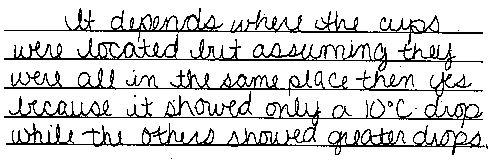 It depends where the cups
were located but assuming they
were all in the same place then yes
because it showed only a 10°C drop
while the others showed greater drops.